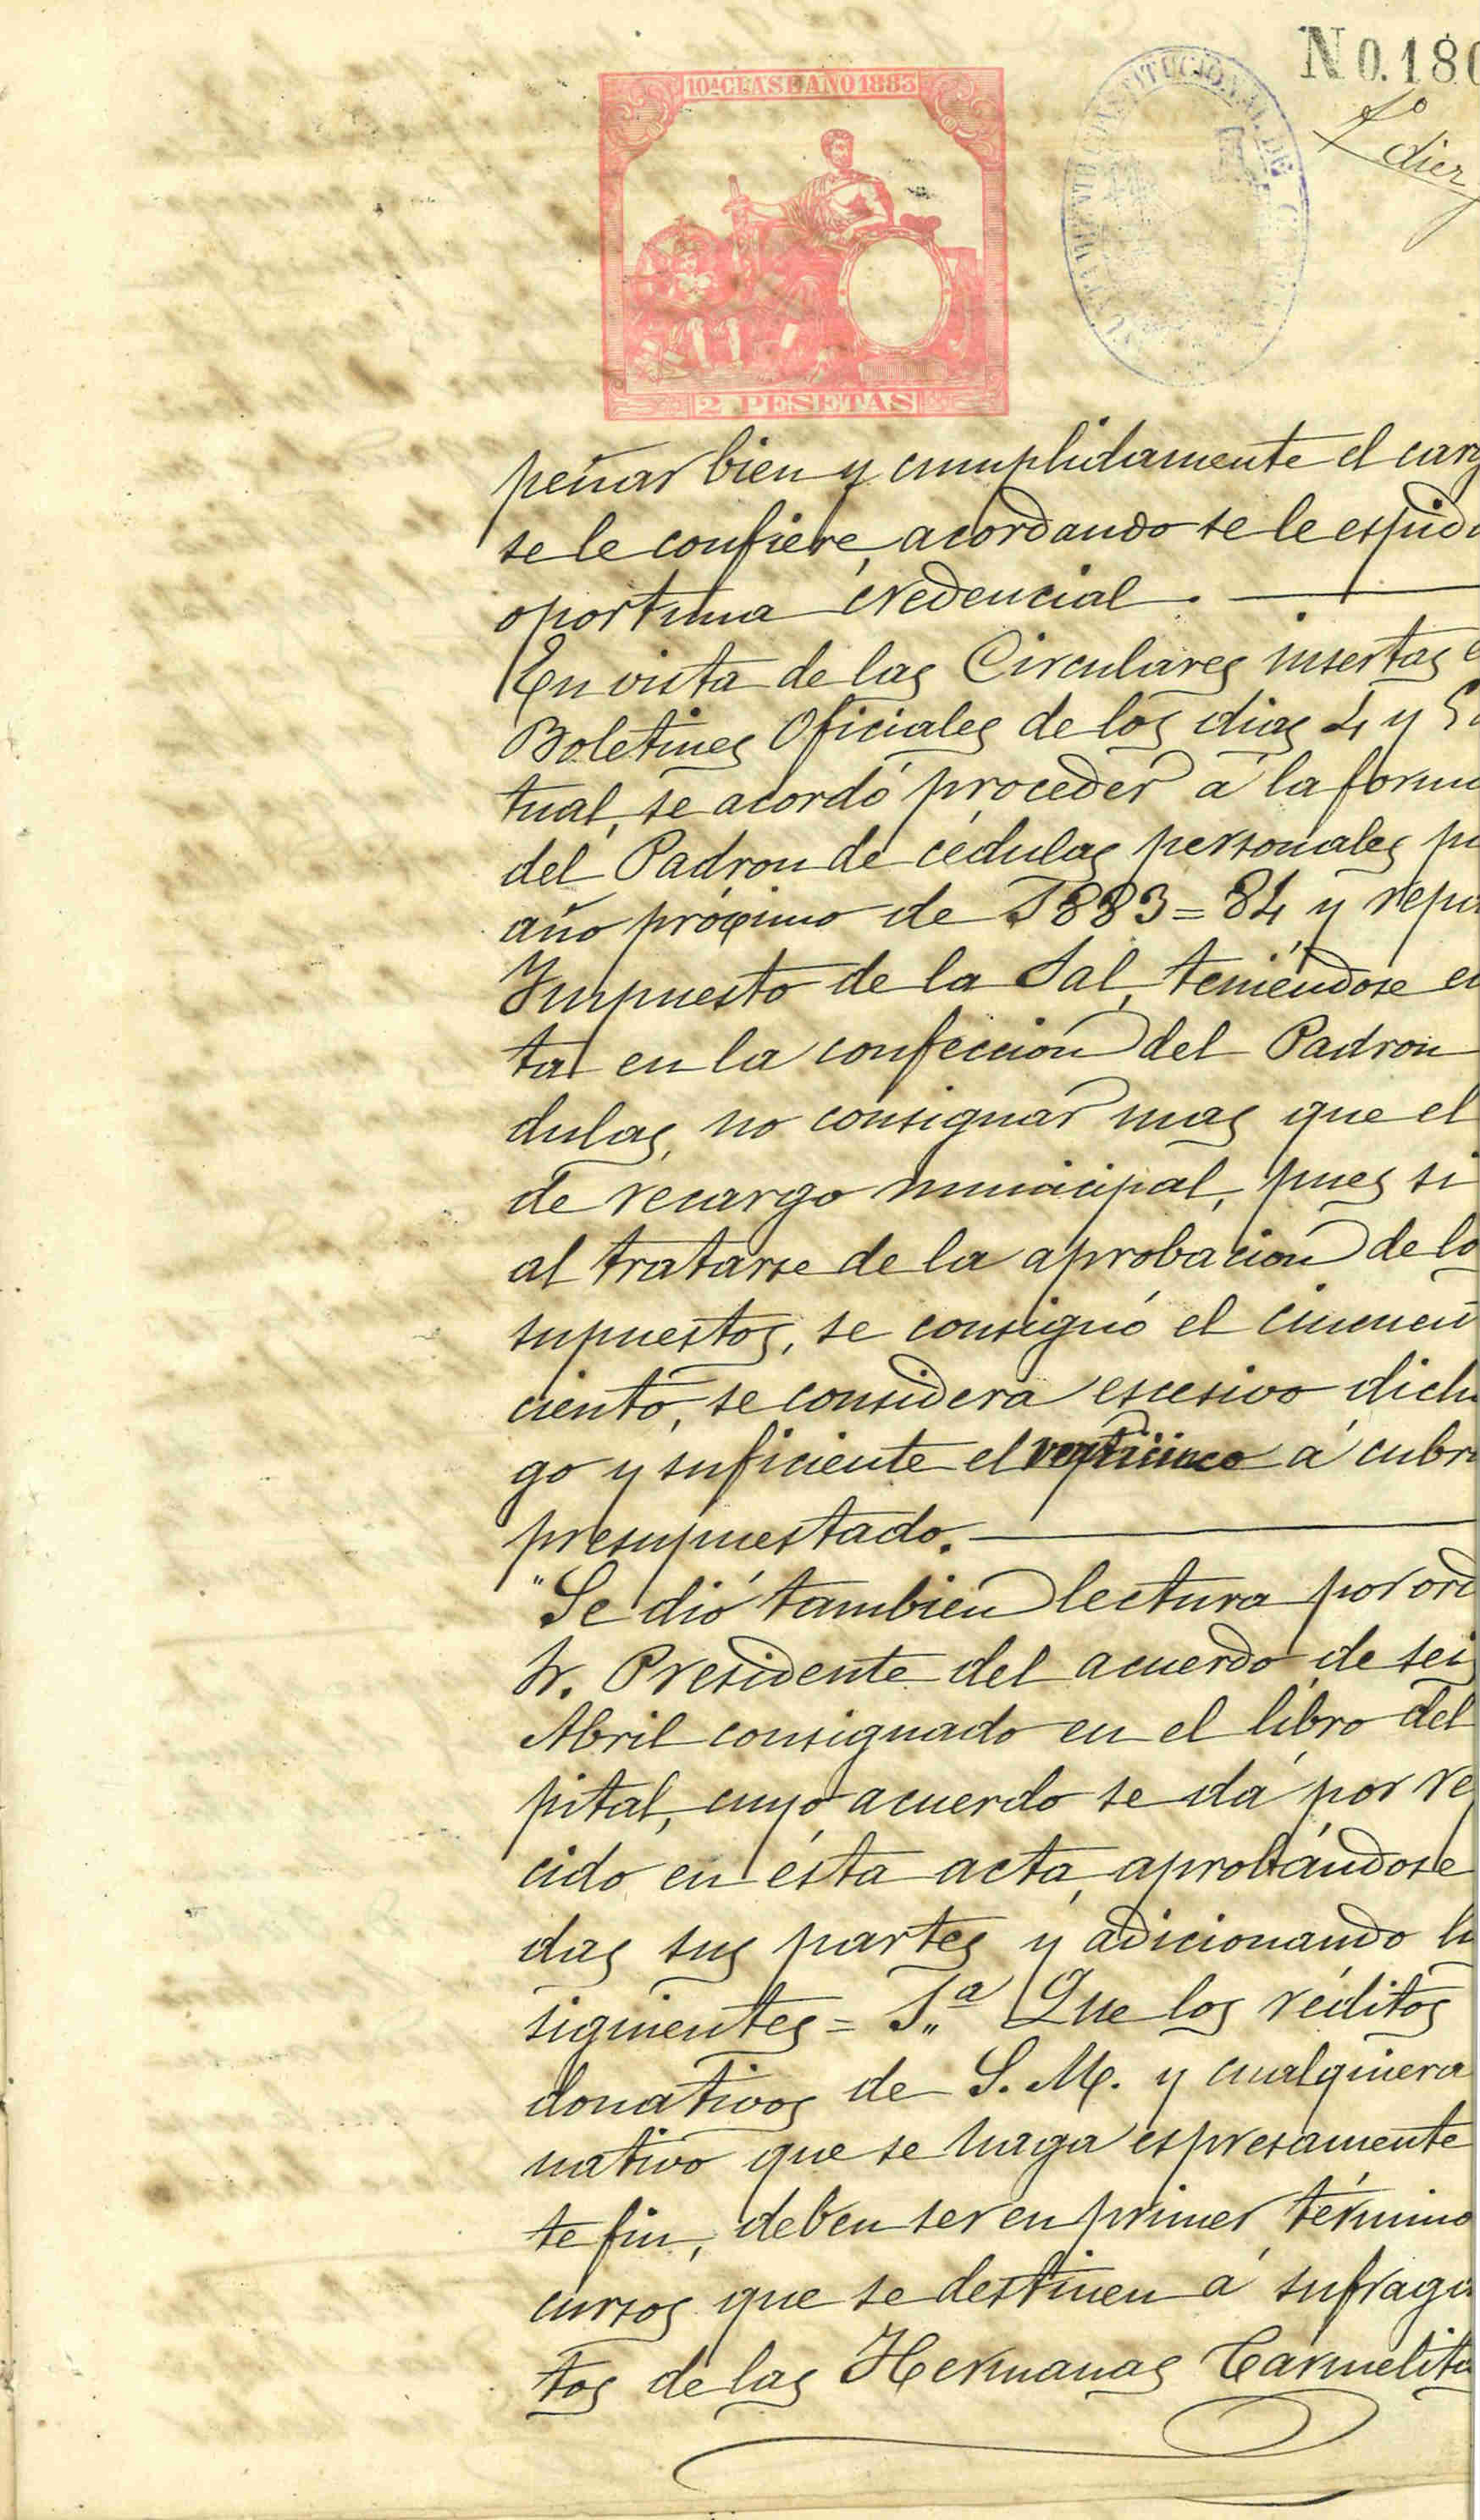 10ª CLASE AÑO 1883
2 PESETAS
N 0.180
diez
peñar bien y cumplidamente el carg
se le confiere, acordando se le espida
oportuna credencial.
En vista de las Circulares insertas e
Boletines Oficiales de los dias 4 y 5
tual, se acordó proceder á la forma
del Padron de cédulas personales pa
año próximo de 1883=84 y repa
Impuesto de la Sal, teniéndose en
ta en la confeccion del Padron
dulas, no consignar mas que el
de recargo municipal, pues si
al tratarse de la aprobacion de lo
supuestos, se consignó el cincuen
ciento, se considera escesivo dich
go y suficiente el venticinco á cubri
presupuestado.
"Se dió tambien lectura por ord
Sr. Presidente del acuerdo de seis
Abril consignado en el libro del
pital, cuyo acuerdo se dá por re
cido en ésta acta, aprobándose
das sus partes y adicionando la
siguientes = 1.ª Que los réditos
donativos de S. M. y cualquiera
nativo que se haga espresamente
te fin, deben ser en primer término
cursos que se destinen á sufraga
tos de las Hermanas Carmelita